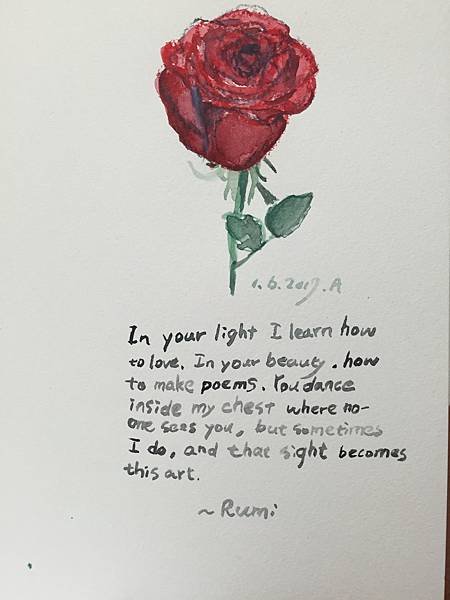 1.6.2017.A
In your light I learn how
to love. In your beauty. how
to make poems. You dance
inside my chest where no-
one sees you, but sometimes
I do, and that sight becomes
this art.
~ Rumi